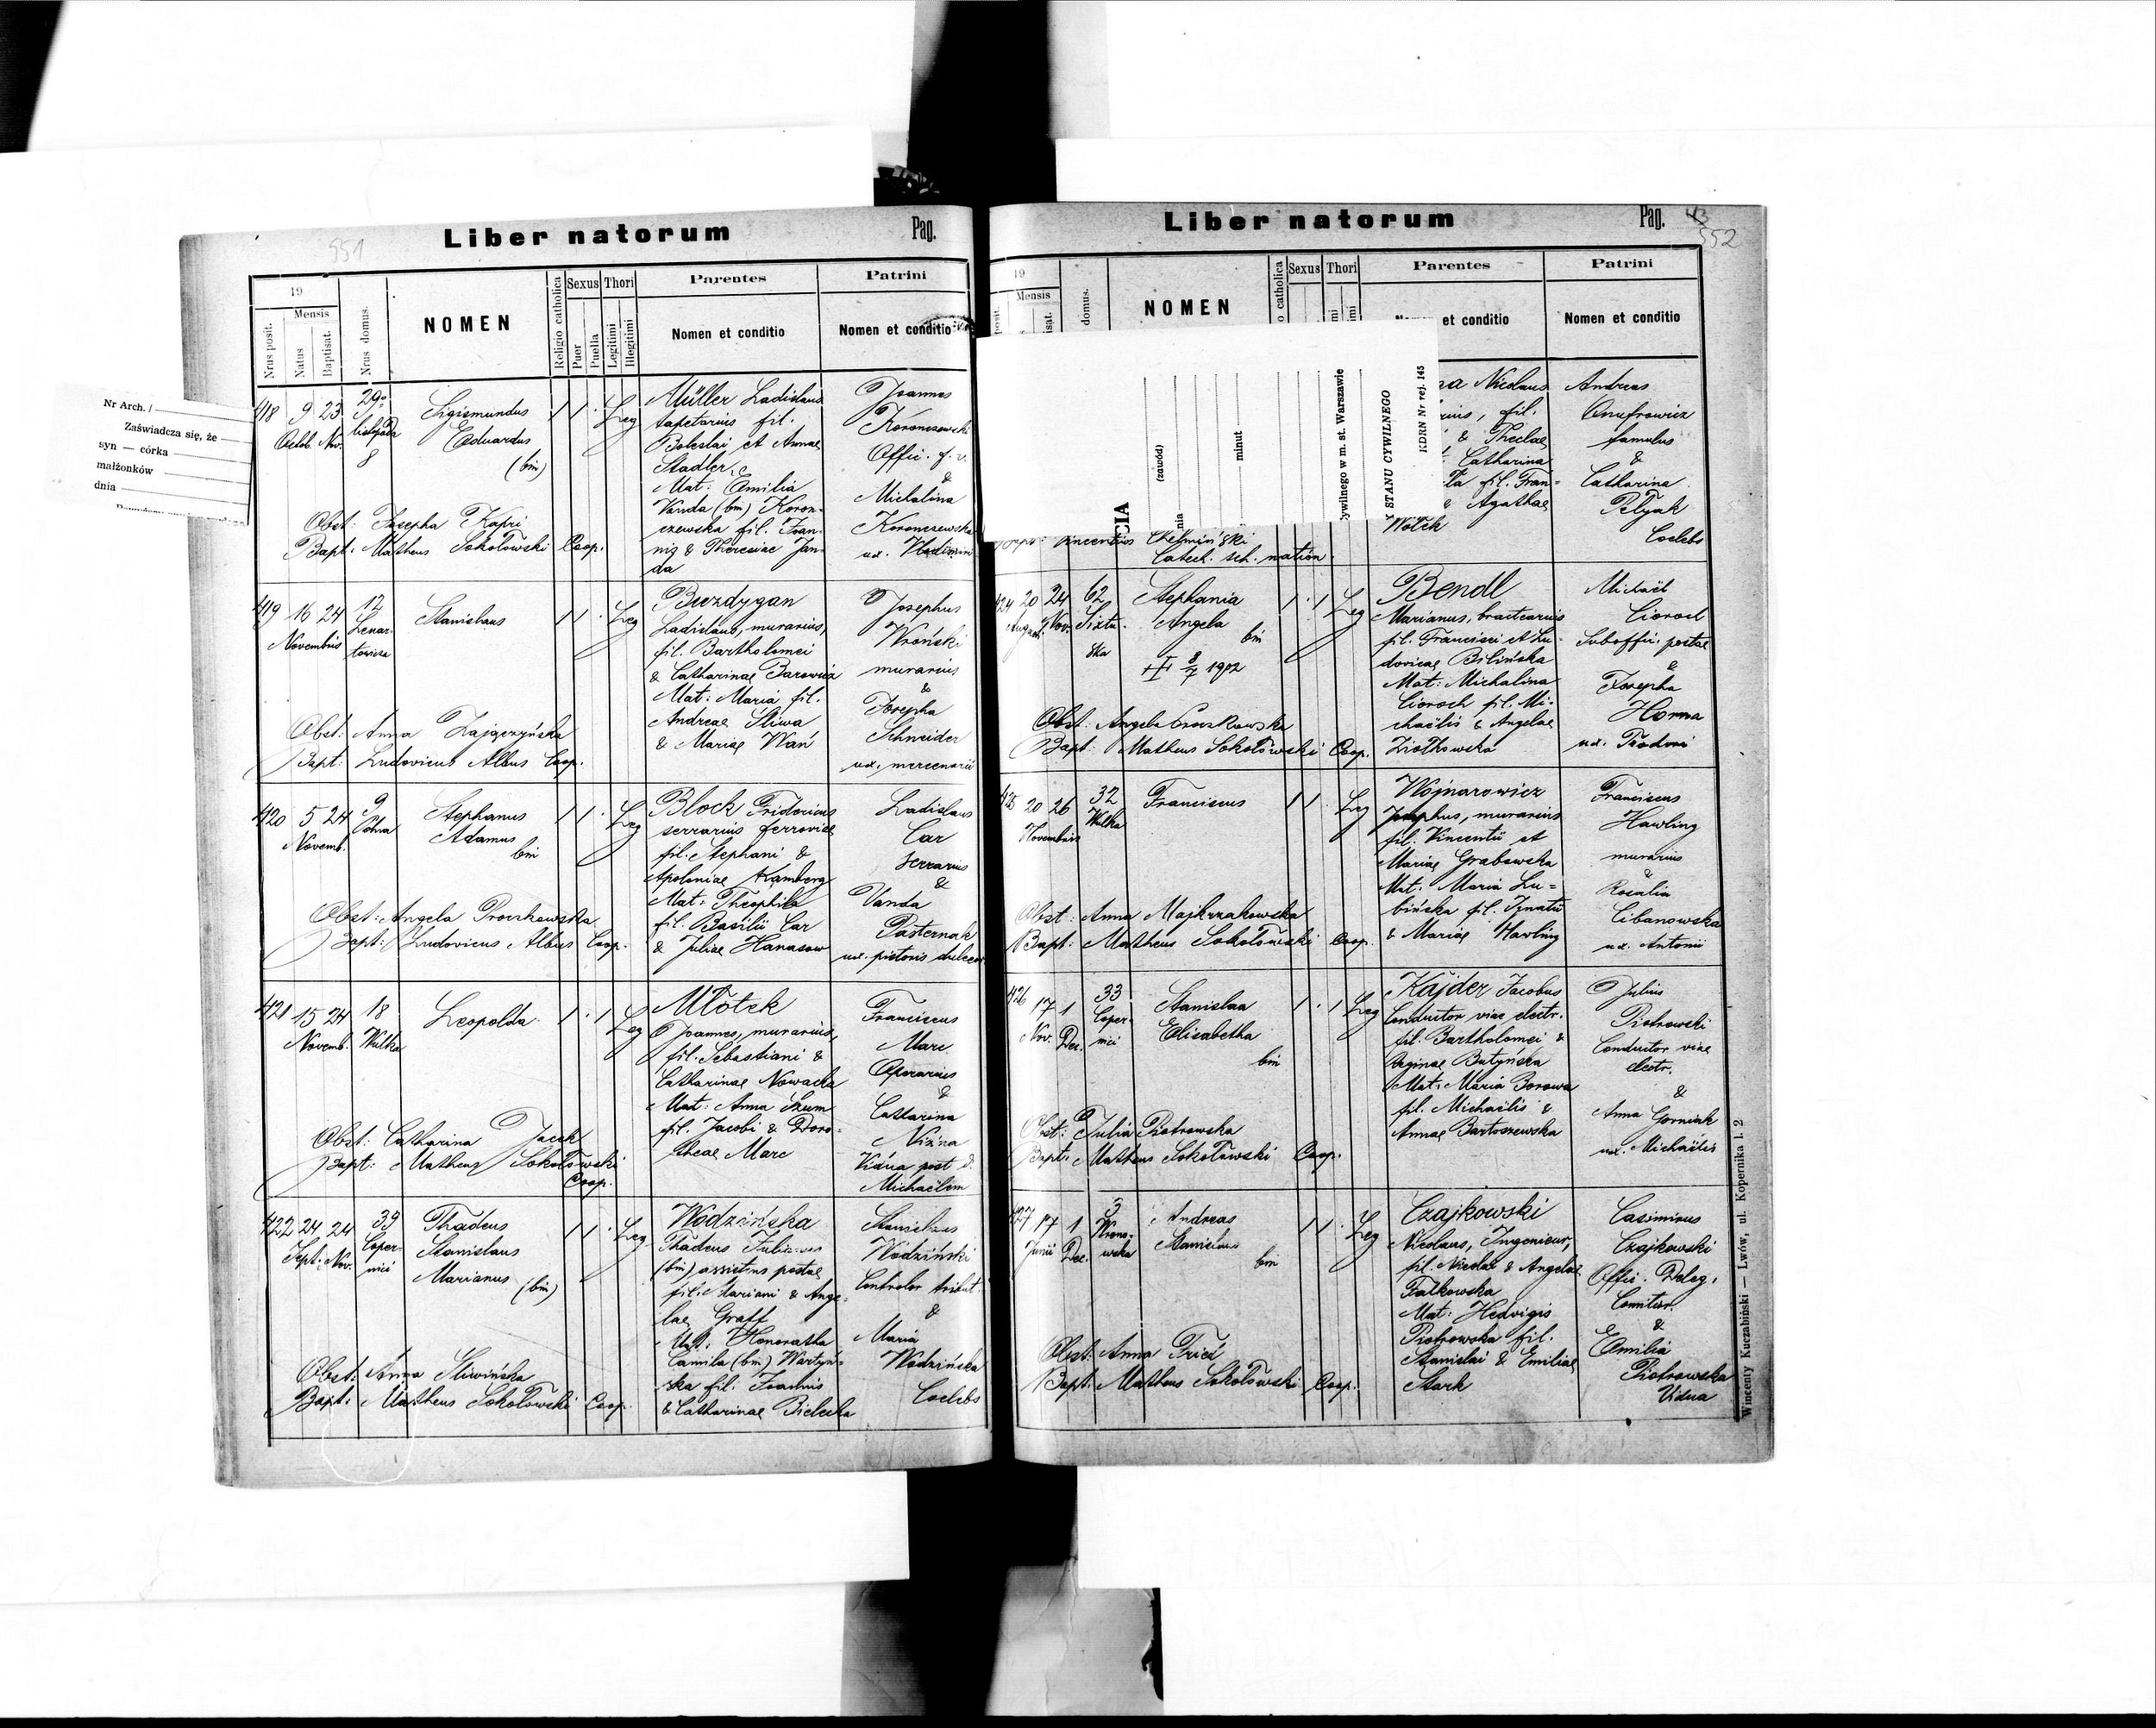 551
Liber natorum Pag.
19
Mensis
Nrus posit.
Natus
Baptisat.
Nrus domus.
NOMEN
Religio catholica
Sexus
Puer
Puella
Thori
Legitimi
Illegitimi
Parentes
Nomen et conditio
Patrini
Nomen et conditio
Nr Arch. /
Zaświadcza się, że
syn — córka
małżonków
dnia
418 9 23 29a
Octob. Nov. listopada
8
Sigismundus
Eduardus
(bin)
1 1 . Leg
Müller Ladislaus
tapetarius fil.
Boleslai et Annae
Stadler
Mat: Emilia
Vanda (bin) Koron-
czewska fil. Joan-
nis & Theresiae Jan-
da
Joannes
Koronczewski
Offic. f. v.
&
Michalina
Koronczewska
ux. Vladimiri
Obst: Josepha Kapri
Bapt: Matheus Sokołowski Coop.
419 16 24 17
Novembris Lenar-
towicza
Stanislaus
1 1 . Leg
Buzdygan
Ladislaus, murarius,
fil. Bartholomei
& Catharinae Barowicz
Mat: Maria fil.
Andreae Śliwa
& Mariae Wań
Josephus
Wroński
murarius
&
Josepha
Schneider
ux. mercenarii
Obst: Anna Zajączyńska
Bapt: Ludovicus Albus Coop.
420 5 24 9
Novemb.
Stephanus
Adamus
bin
1 1 . Leg
Block Fridericus
serrarius ferroviae
fil. Stephani &
Apoloniae Kamberg
Mat: Theophila
fil. Basilii Car
& Juliae Hanasow
Ladislaus
Car
serrarius
&
Vanda
Pasternak
ux. pistoris
Obst: Angela Proszkowska
Bapt: Ludovicus Albus Coop.
421 15 24 18
Novemb. Wulka
Leopolda
1 . 1 Leg
Młotek
Joannes, murarius,
fil. Sebastiani &
Catharinae Nowacka
Mat: Anna Szum
fil. Jacobi & Doro-
theae Marc
Franciscus
Marc
Operarius
&
Catharina
Nizina
Vidua post d.
Michaëlem
Obst: Catharina Jacek
Bapt: Matheus Sokołowski
Coop.
422 24 24 39
Sept. Nov. Coper-
nici
Thadeus
Stanislaus
Marianus
(bin)
1 1 . Leg
Wodzińska
Thadeus Julianus
(bin) assistens postae
fil. Mariani & Ange-
lae Graff
Mat: Honoratha
Camila (bin) Wartyń-
ska fil. Joannis
& Catharinae Bielecka
Stanislaus
Wodziński
Controlor tribut.
&
Maria
Wodzińska
Coelebs
Obst: Anna Śliwińska
Bapt: Matheus Sokołowski Coop.
Liber natorum Pag. 43
552
19
Mensis
domus.
NOMEN
catholica
Sexus
Thori
Parentes
et conditio
Patrini
Nomen et conditio
(zawód)
minut
ywilnego w m. st. Warszawie
STANU CYWILNEGO
KDRN Nr rej. 145
na Nicolaus
fil.
& Theclae
Catharina
fil. Fran-
& Agathae
Wołek
Andreas
Onufrowicz
famulus
&
Catharina
Petyak
Coelebs
Bapt: Vincentius Chełmiński
Catech. sch. nation.
424 20 24 62
August. Nov. Sixtu-
ska
Stephania
Angela
bin
8/7 1902
1 . 1 Leg
Bendl
Marianus, bractearius
fil. Francisci et Lu-
dovicae Bilińska
Mat: Michalina
Cioroch fil. Mi-
chaëlis & Angelae
Ziołkowska
Michaël
Cioroch
Suboffic. postae
&
Josepha
Horwa
ux. Teodori
Obst: Angela Proszkowska
Bapt: Matheus Sokołowski Coop.
425 20 26 32
Novembris Wulka
Franciscus
1 1 . Leg
Wojnarowicz
Josephus, murarius
fil. Vincentii et
Mariae Grabowska
Mat: Maria Lu-
bińska fil. Ignatii
& Mariae Hawling
Franciscus
Hawling
murarius
&
Rosalia
Cibanowska
ux. Antonii
Obst: Anna Majkrzakowska
Bapt: Matheus Sokołowski Coop.
426 17 1 33
Nov. Dec. Coper-
nici
Stanislaa
Elisabetha
bin
1 . 1 Leg
Kajder Jacobus
Conductor viae electr.
fil. Bartholomei &
Reginae Butyńska
Mat: Maria Borowa
fil. Michaëlis &
Annae Bartoszewska
Julius
Piotrowski
Conductor viae
electr.
&
Anna Gorniak
ux. Michaëlis
Obst: Julia Piotrowska
Bapt: Matheus Sokołowski Coop.
427 17 1 3
Junii Dec. Wrono-
wska
Andreas
Stanislaus
bin
1 1 . Leg
Czajkowski
Nicolaus, Ingenieur,
fil. Nicolai & Angelae
Falkowska
Mat: Hedvigis
Piotrowska fil.
Stanislai & Emiliae
Stark
Casimirus
Czajkowski
Offic. Deleg.
&
Emilia
Piotrowska
Vidua
Obst: Anna Frici
Bapt: Matheus Sokołowski Coop.
Wincenty Kuczabiński — Lwów, ul. Kopernika l. 2